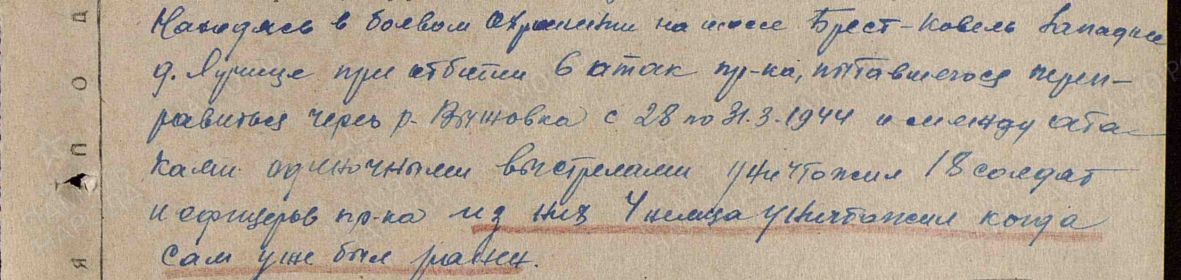 Находясь в боевом охранении на шоссе Брест-Ковель западнее
д. Лучице при отбитии 6 атак пр-ка, пытавшегося переп-
равиться через р. Выжовка с 28 по 31.3.1944 и между ата-
ками одиночными выстрелами уничтожил 18 солдат
и офицеров пр-ка из них 4 немца уничтожил когда
сам уже был ранен.